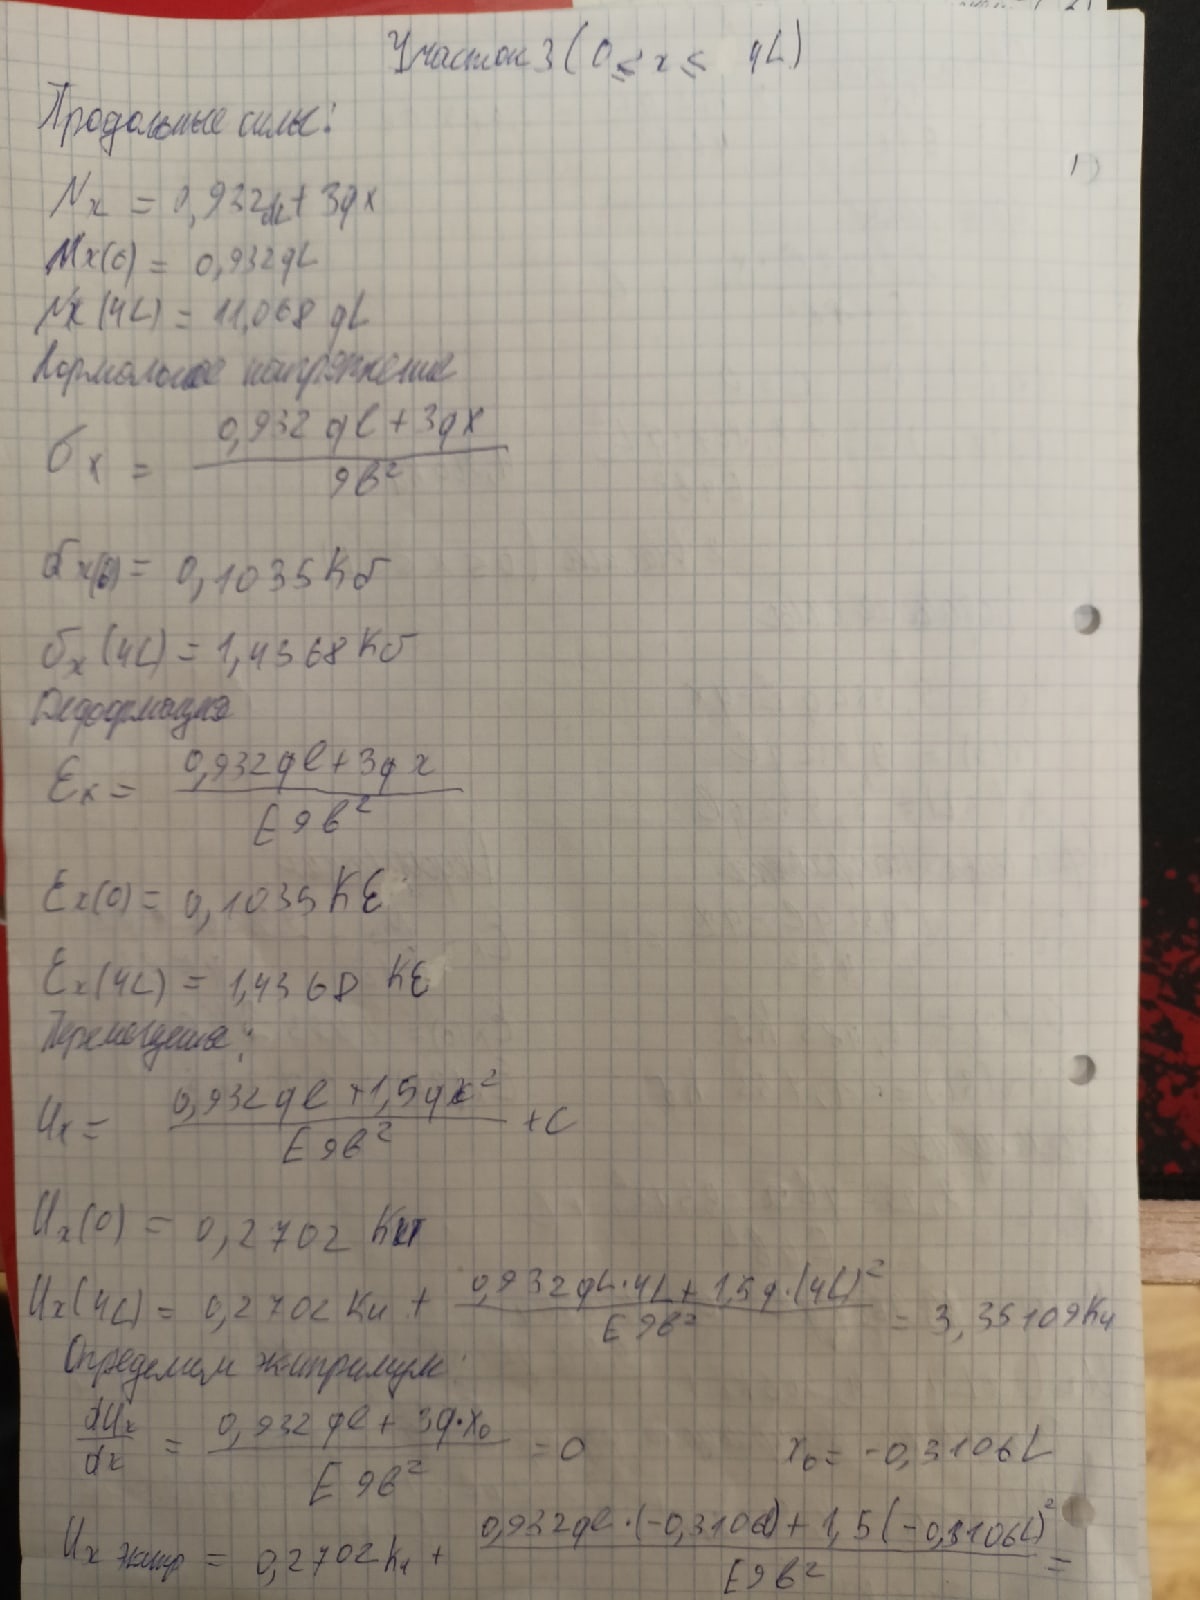 Участок 3 ( 0 ≤ x ≤ 4L)
Продольные силы:
Nx = 0,932qL + 3qx
Nx(0) = 0,932qL
Nx(4L) = 11,068 qL
Нормальное напряжение
σx = (0,932 ql + 3qx) / 9b²
σx(0) = 0,1035 Kσ
σx(4L) = 1,4368 Kσ
Деформация
Ex = (0,932ql + 3qx) / E9b²
Ex(0) = 0,1035 KE
Ex(4L) = 1,4368 KE
Перемещения:
Ux = (0,932ql + 1,5qx²) / E9b² + C
Ux(0) = 0,2702 Ku
Ux(4L) = 0,2702 Ku + (0,932qL·4L + 1,5q·(4L)²) / E9b² = 3,35109Ku
Определим экстримум:
dUx/dx = (0,932 ql + 3q·x₀) / E9b² = 0 x₀ = -0,3106L
Ux экстр = 0,2702Ku + (0,932ql·(-0,3106l) + 1,5(-0,3106L)²) / E9b² =